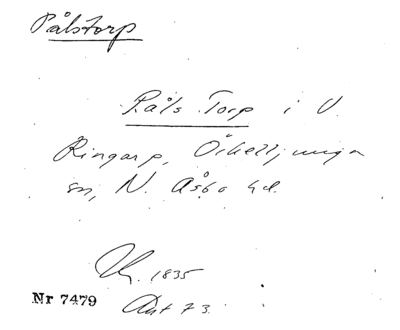 Pålstorp
Påls Torp i V.
Ringarp, Örkelljunga
sn, N. Åsbo hd.
1835
Nr 7479
Art 73.